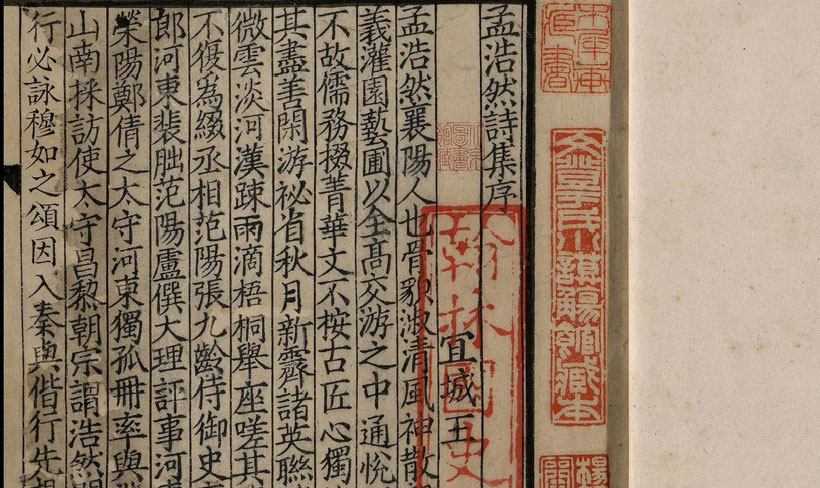 文登于氏小謨觴館藏本
翰林國史
孟浩然詩集序
宜城王
孟浩然襄陽人也骨貌淑清風神散
義灌園藝圃以全髙交游之中通悅
不故儒務掇菁華文不桉古匠心獨
其盡善閑游祕省秋月新霽諸英聯
微雲淡河漢踈雨滴梧桐舉座嗟其
不復為綴丞相范陽張九齡侍御史
郎河東裴朏范陽盧僎大理評事河
滎陽鄭倩之太守河東獨孤冊率與
山南採訪使太守昌黎朝宗謂浩然
行必詠穆如之頌因入秦與偕行先